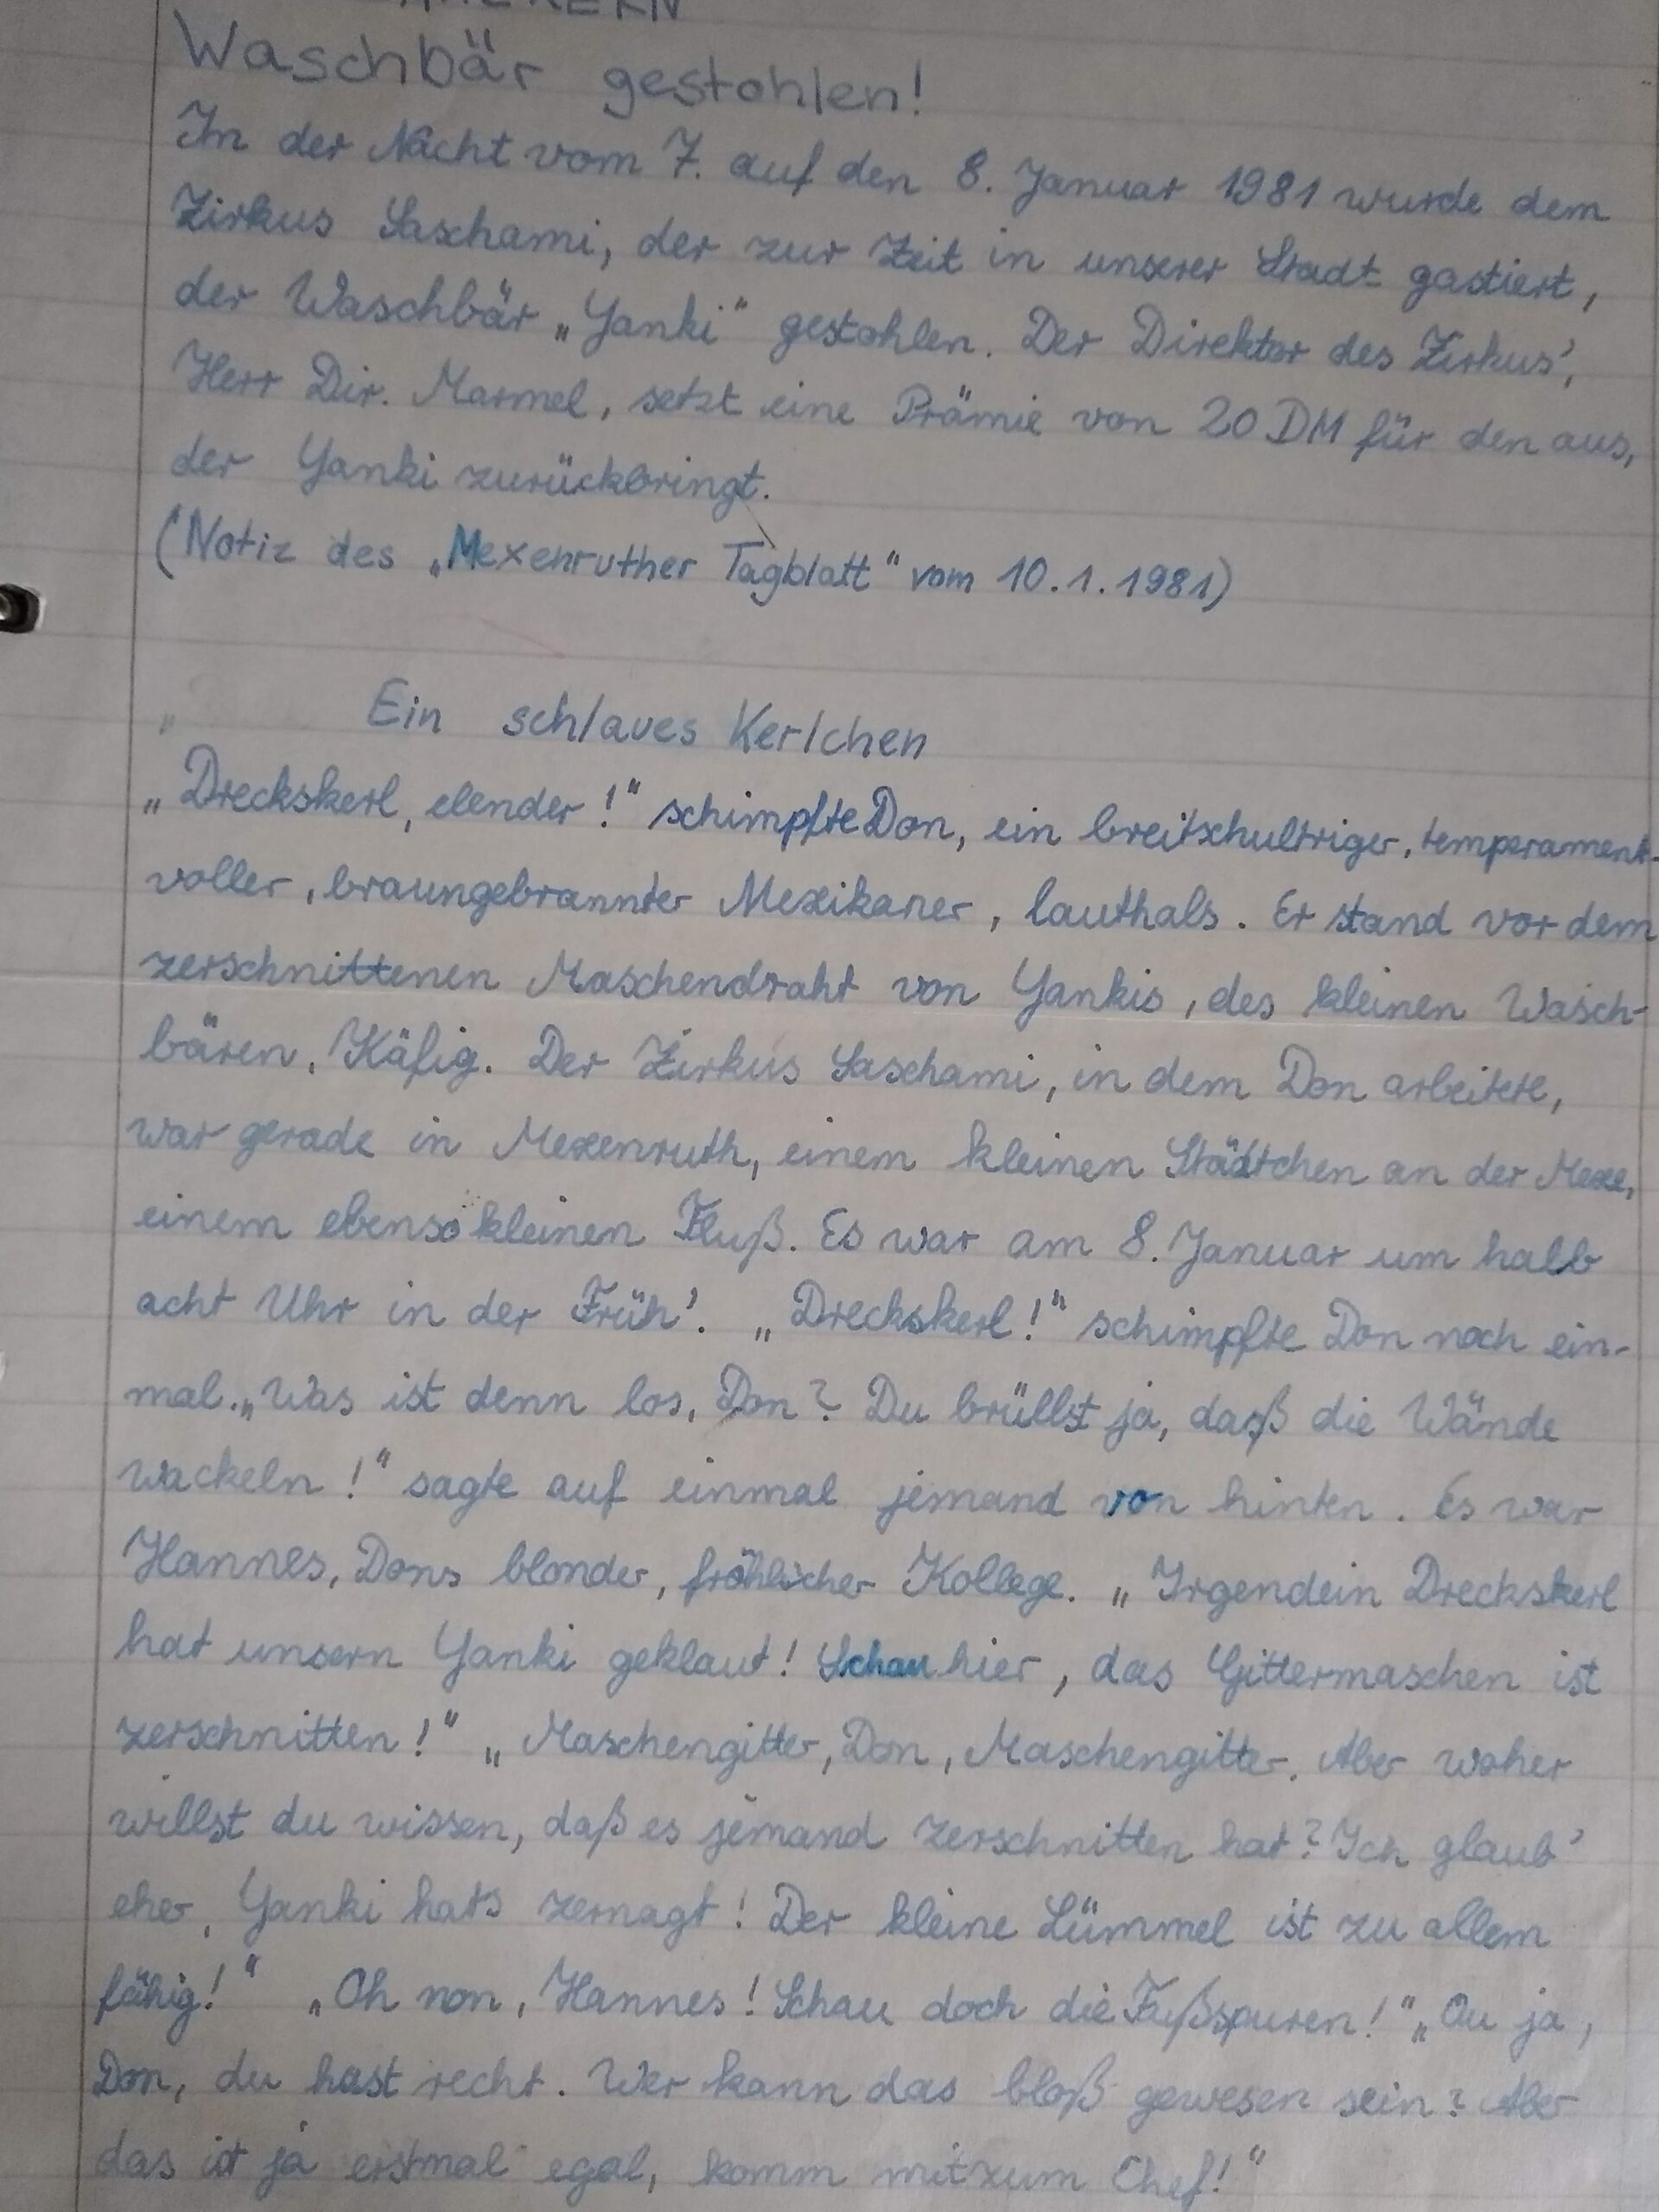 Waschbär gestohlen!
In der Nacht vom 7. auf den 8. Januar 1981 wurde dem
Zirkus Saschami, der zur Zeit in unserer Stadt gastiert,
der Waschbär „Yanki“ gestohlen. Der Direktor des Zirkus',
Herr Dir. Marmel, setzt eine Prämie von 20 DM für den aus,
der Yanki zurückbringt.
(Notiz des „Mexenruther Tagblatt“ vom 10.1.1981)
Ein schlaues Kerlchen
„Dreckskerl, elender!“ schimpfte Don, ein breitschultriger, temperament-
voller, braungebrannter Mexikaner, lauthals. Er stand vor dem
zerschnittenen Maschendraht von Yankis, des kleinen Wasch-
bären, Käfig. Der Zirkus Saschami, in dem Don arbeitete,
war gerade in Mexenruth, einem kleinen Städtchen an der Mexe,
einem ebenso kleinen Fluß. Es war am 8. Januar um halb
acht Uhr in der Früh'. „Dreckskerl!“ schimpfte Don noch ein-
mal. „Was ist denn los, Don? Du brüllst ja, daß die Wände
wackeln!“ sagte auf einmal jemand von hinten. Es war
Hannes, Dons blonder, fröhlicher Kollege. „Irgendein Dreckskerl
hat unsern Yanki geklaut! Schau hier, das Gittermaschen ist
zerschnitten!“ „Maschengitter, Don, Maschengitter. Aber woher
willst du wissen, daß es jemand zerschnitten hat? Ich glaub'
eher, Yanki hats zernagt! Der kleine Lümmel ist zu allem
fähig!“ „Oh non, Hannes! Schau doch die Fußspuren!“ „Ou ja,
Don, du hast recht. Wer kann das bloß gewesen sein? Aber
das ist ja erstmal egal, komm mit zum Chef!“